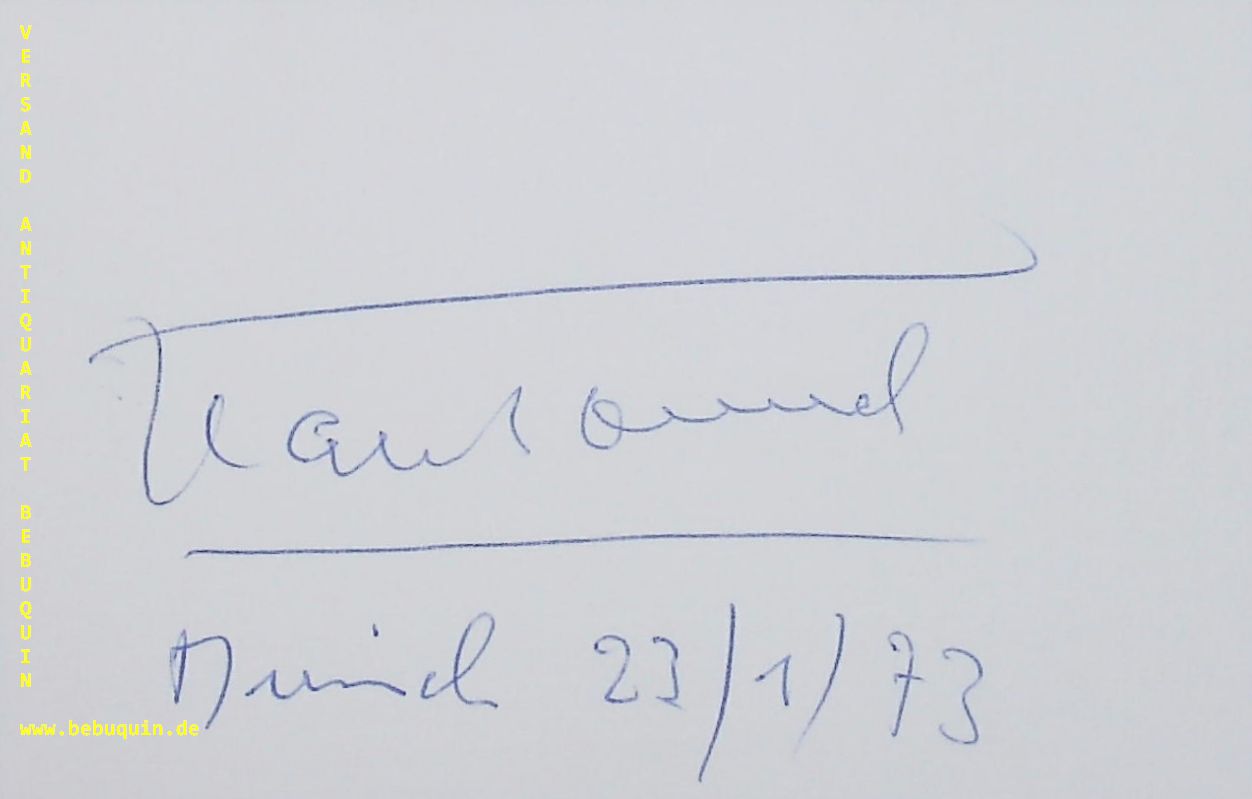 VERSAND ANTIQUARIAT BEBUQUIN
Munich 23/1/73
www.bebuquin.de